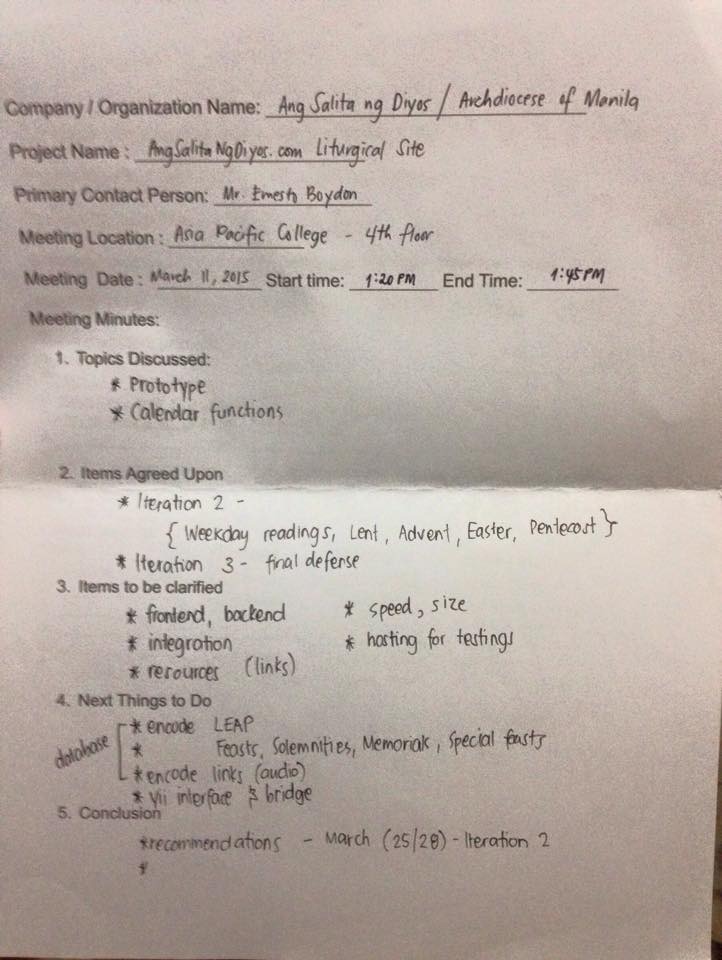 Company / Organization Name: Ang Salita ng Diyos / Archdiocese of Manila
Project Name : AngSalitaNgDiyos.com Liturgical Site
Primary Contact Person: Mr. Ernesto Boydon
Meeting Location : Asia Pacific College - 4th floor
Meeting Date : March 11, 2015 Start time: 1:20 PM End Time: 1:45 PM
Meeting Minutes:
1. Topics Discussed:
* Prototype
* Calendar functions
2. Items Agreed Upon
* Iteration 2 -
{ Weekday readings, Lent, Advent, Easter, Pentecost }
* Iteration 3 - final defense
3. Items to be clarified
* frontend, backend * speed, size
* integration * hosting for testings
* resources (links)
4. Next Things to Do
database * encode LEAP
* Feasts, Solemnities, Memorials, Special feasts
* encode links (audio)
* Yii interface & bridge
5. Conclusion
*recommendations - March (25/28) - Iteration 2
*